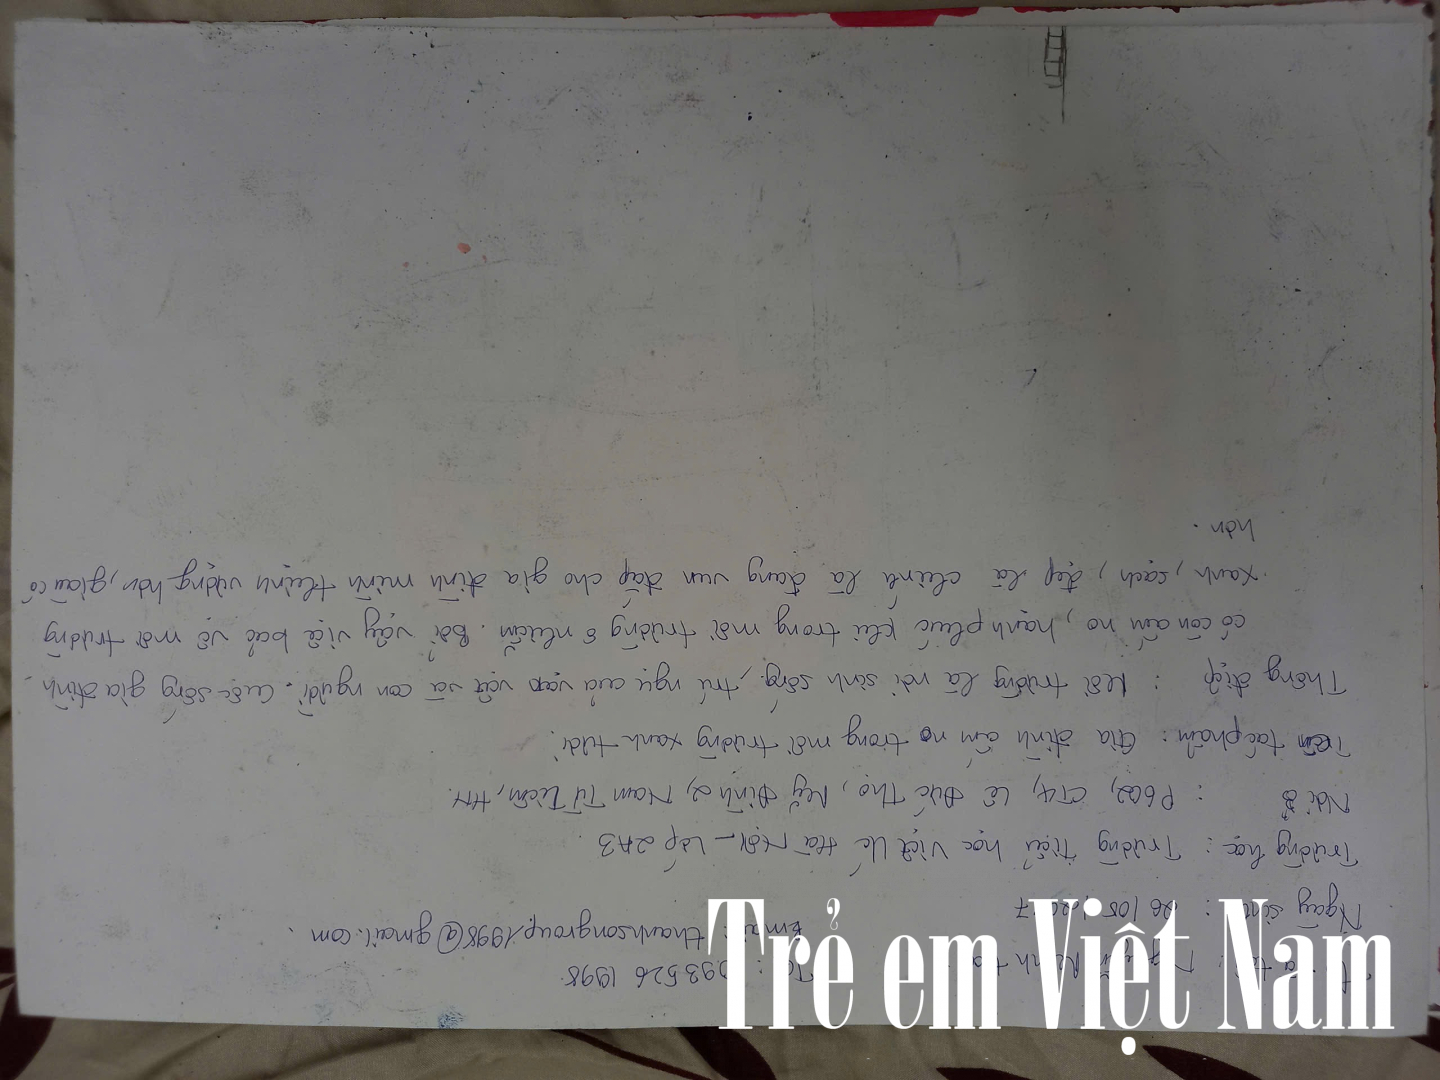 Ngày sinh: 26/05/2017
Email: thanhsongroup.1998@gmail.com.
Trường học: Trường tiểu học Việt Úc Hà Nội - Lớp 2A3
Nơi ở: P602, CT4, Lê Đức Thọ, Mỹ Đình 2, Nam Từ Liêm, HN.
Tên tác phẩm: Gia đình ấm no trong môi trường xanh tươi.
Thông điệp: Môi trường là nơi sinh sống, trú ngụ của vạn vật và con người. Cuộc sống gia đình
có còn ấm no, hạnh phúc khi trong môi trường ô nhiễm. Bởi vậy việc bảo vệ môi trường
xanh, sạch, đẹp là chính là đang vun đắp cho gia đình mình thịnh vượng hơn, giàu có
hơn.
Trẻ em Việt Nam